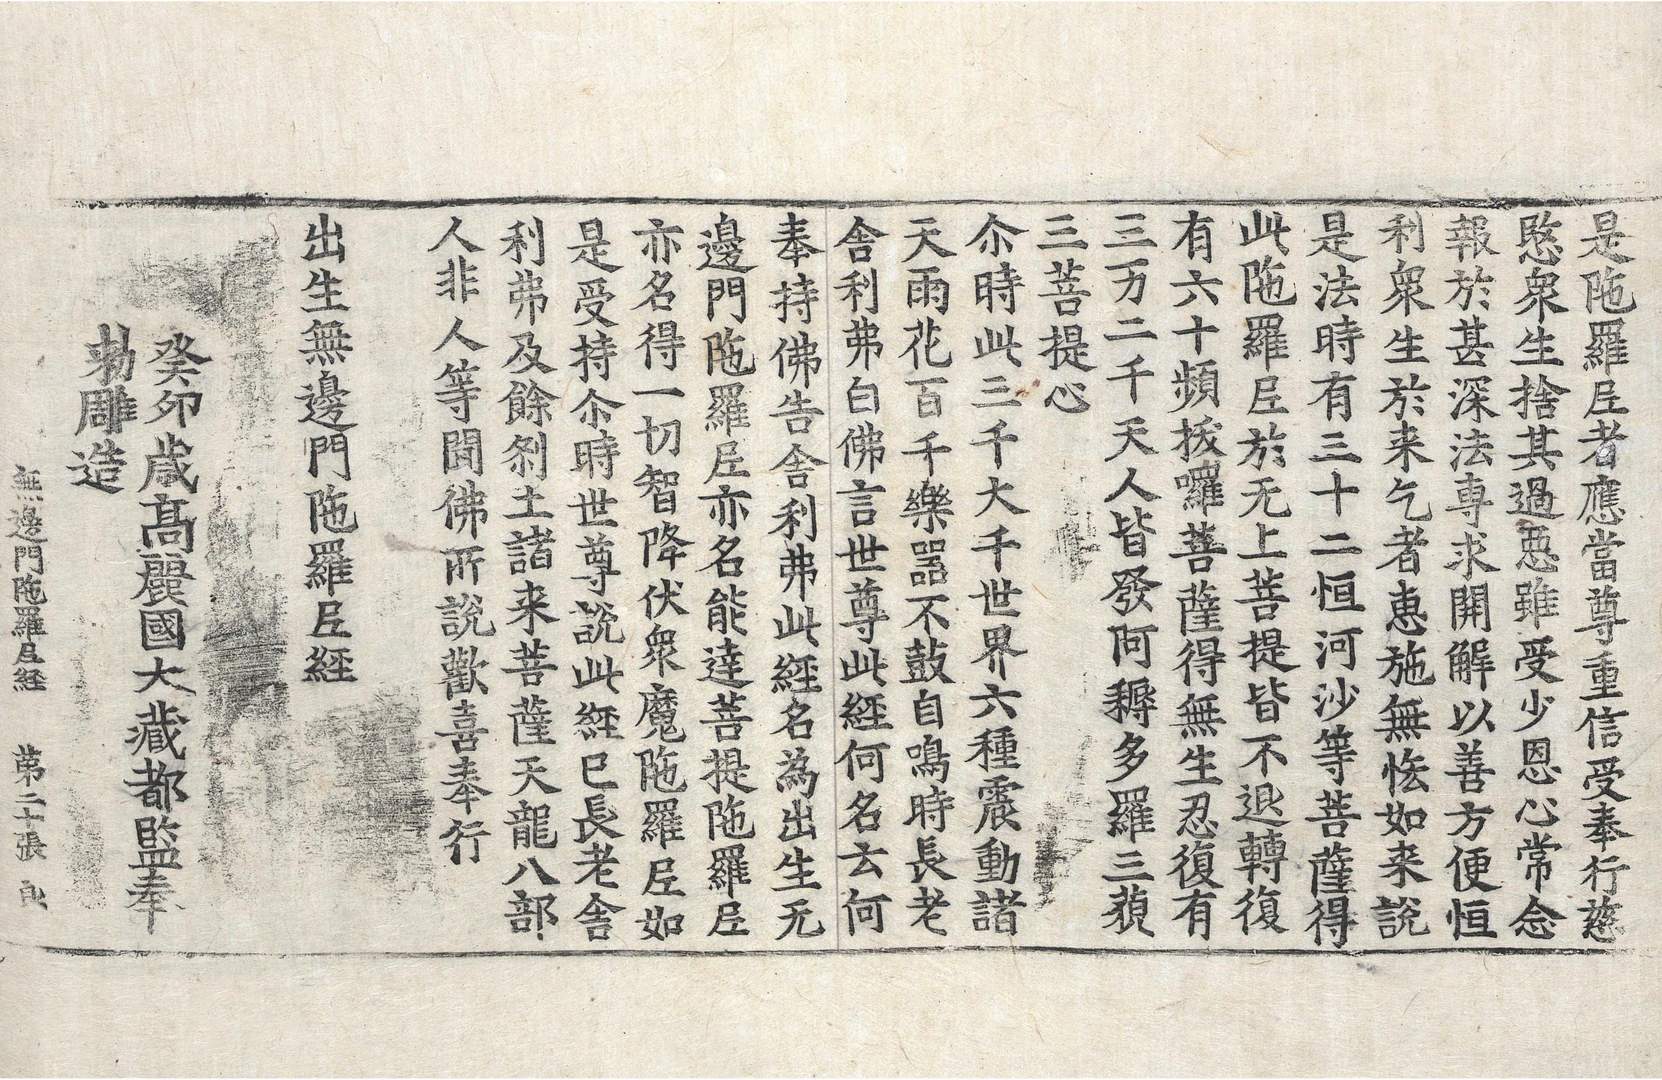 是陁羅𡰱者應當尊重信受奉行慈
愍衆生捨其過惡雖受少恩心常念
報於甚深法専求開解以善方便恒
利衆生於来乞者惠施無恡如来說
是法時有三十二恒河沙等菩薩得
此陁羅𡰱於无上菩提皆不退轉復
有六十頻㧞囉菩薩得無生忍復有
三万二千天人皆發阿耨多羅三藐
三菩提心
尒時此三千大千世界六種震動諸
天雨花百千樂噐不鼓自鳴時長老
舎利弗白佛言世尊此経何名云何
奉持佛告舎利弗此経名為出生无
邊門陁羅𡰱亦名能逹菩提陁羅𡰱
亦名得一切智降伏衆魔陁羅𡰱如
是受持尒時世尊説此経已長老舎
利弗及餘刹土諸来菩薩天龍八部
人非人等聞佛所説歡喜奉行
出生無邊門陁羅𡰱経
癸夘歳髙麗國大藏都監奉
勑雕造
無邊門陁羅𡰱経 第二十張